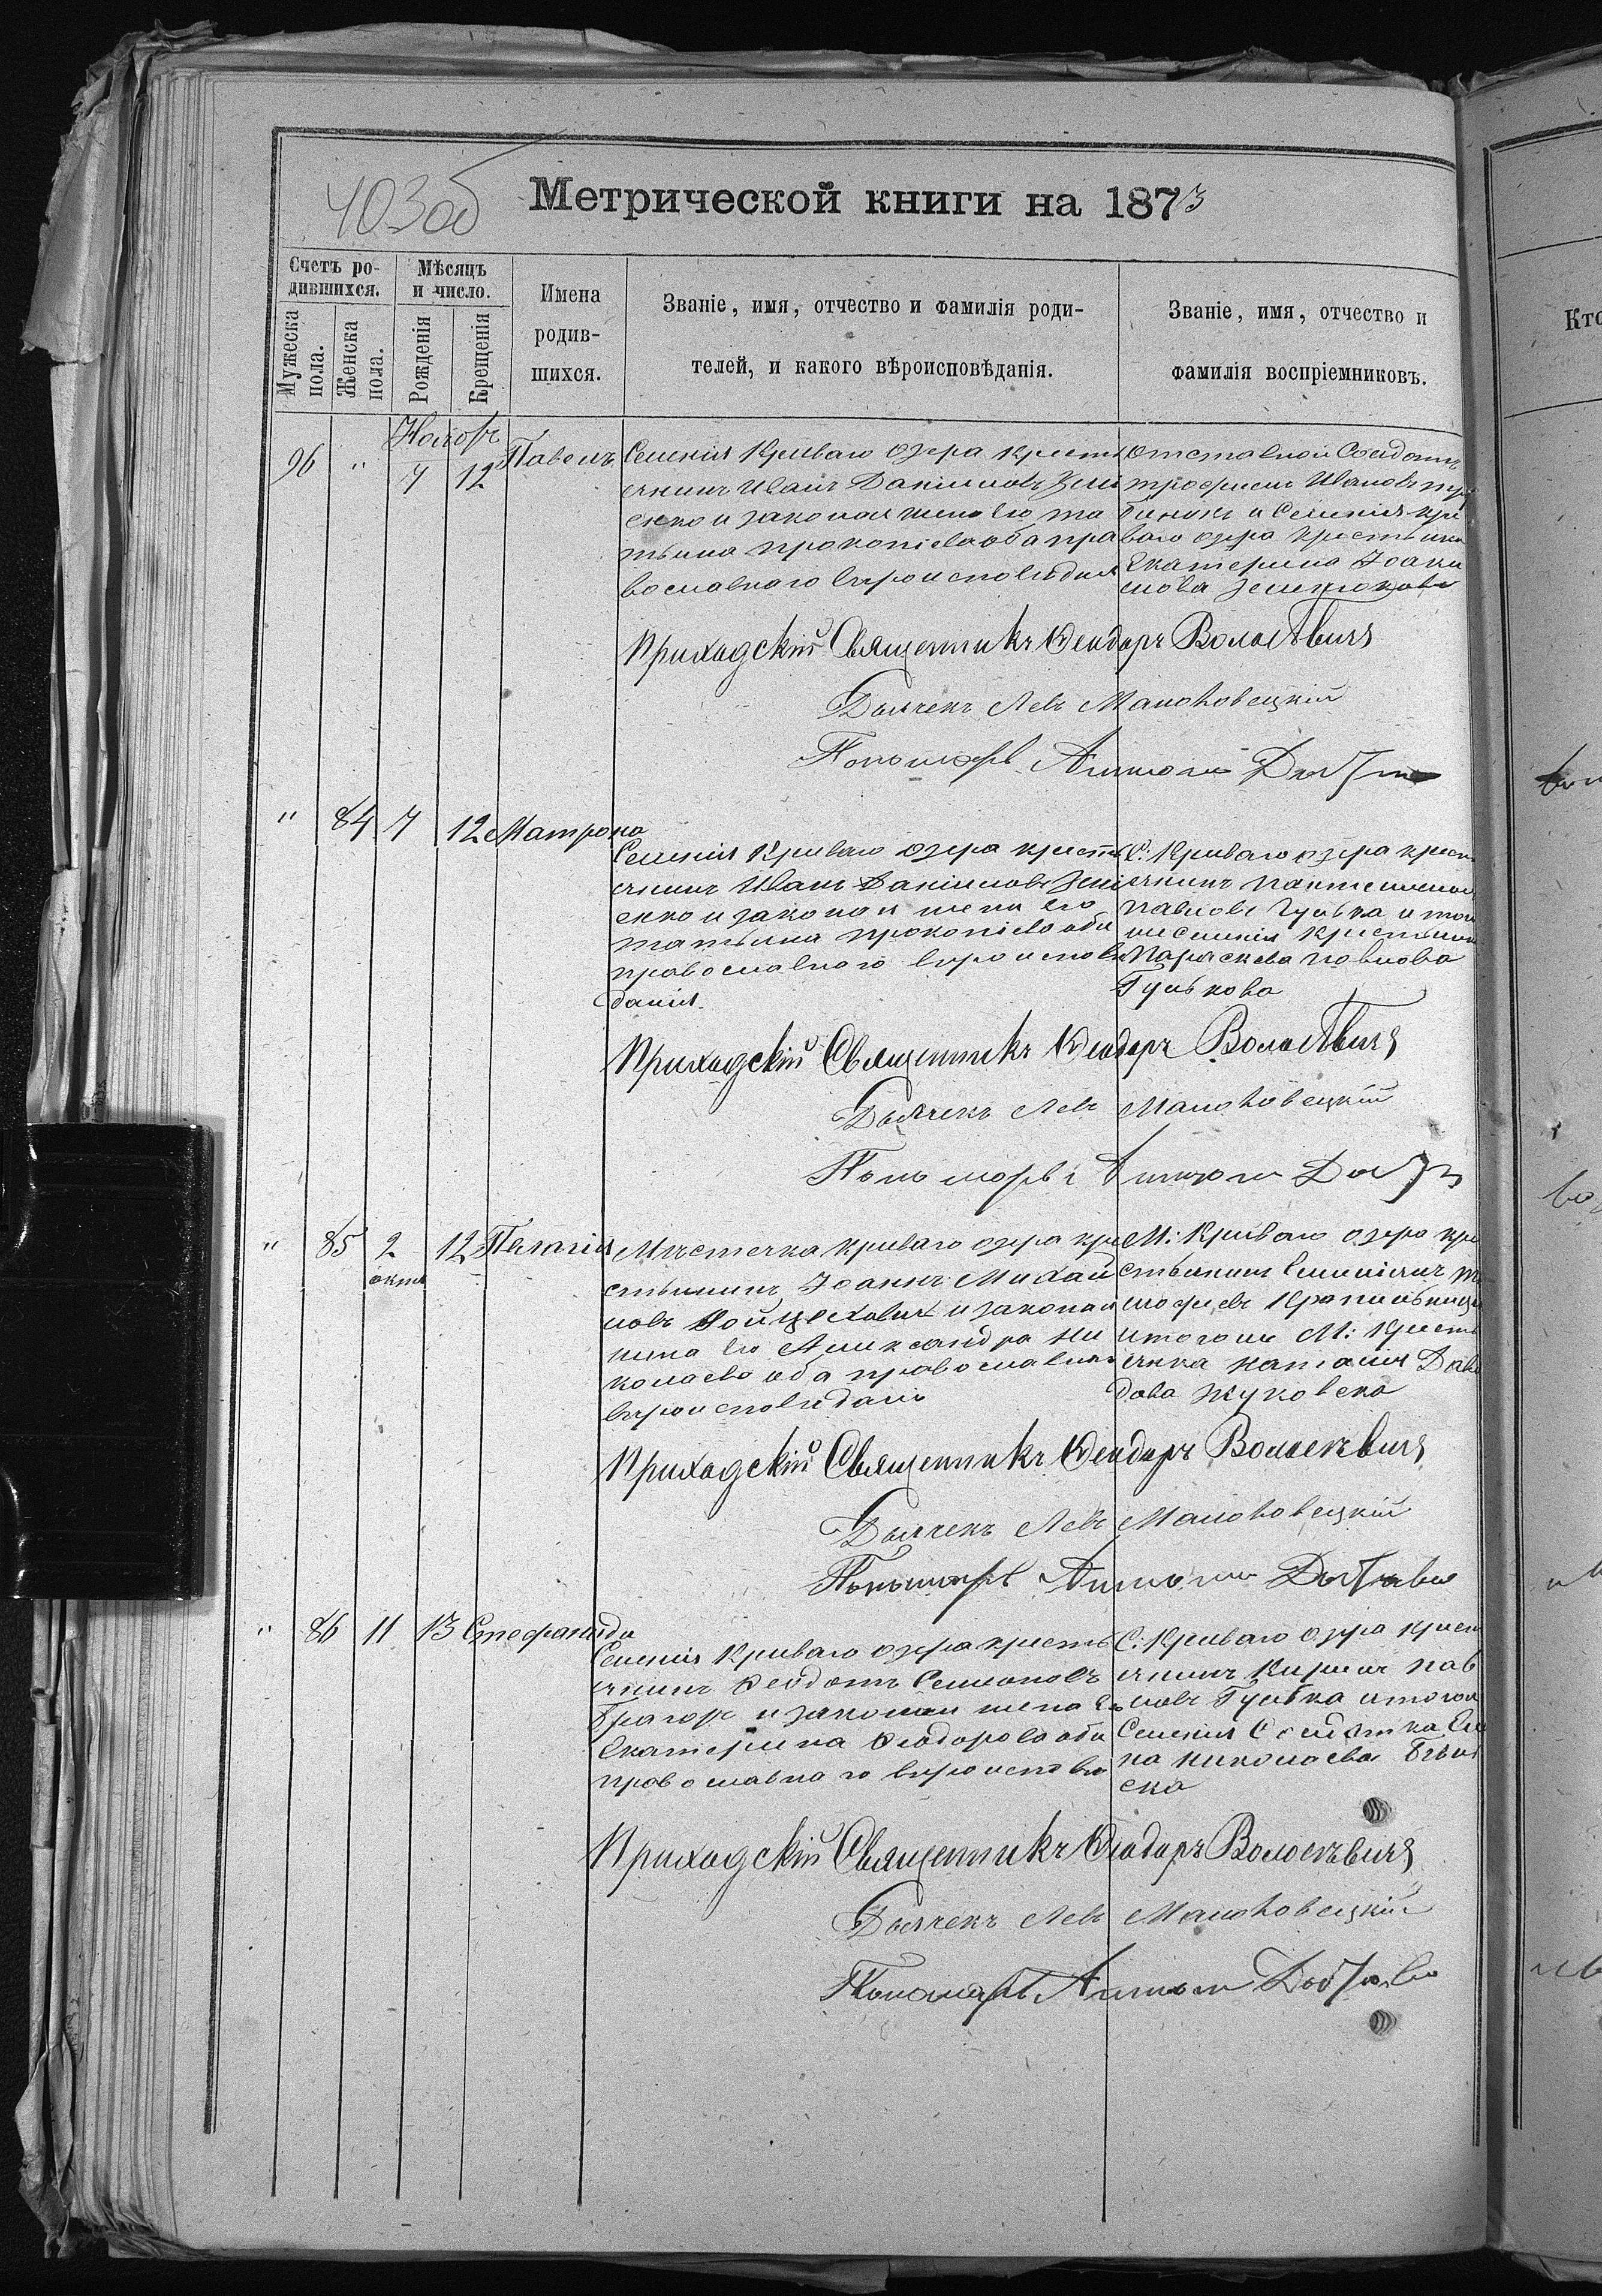 403об
Метрической книги на 1873
Счетъ ро-
дившихся.
Мѣсяцъ
и число.
Мужеска
пола.
Женска
пола.
Рожденія
Крещенія
Имена
родив-
шихся.
Званіе, имя, отчество и фамилія роди-
телей, и какого вѣроисповѣданія.
Званіе, имя, отчество и
фамилія воспріемниковъ.
Кто
Ноябрь
96 " 7 12 Павелъ
Селенія Криваго озера кресть
янинъ Иванъ Даніиловъ Зели
енко и законая жена его та
тьяна прокопіева оба пра
вославнаго вероисповедия
Отставной Солдатъ
трофимъ Ивановъ
и Селенія кри
ваго озера крестьянка
Екатерина Іоаки
мова
Приходскій Священникъ Феодоръ Волосевичъ
Дьячекъ Левъ Маньковецкій
Пономарь Антоній
" 84 7 12 Матрона
Селенія Криваго озера кресть
янинъ Иванъ Даніиловъ Зели
енко и законая жена его
татьяна прокопіева оба
православного вероисповѣ
данія
С: Криваго озера крест
янинъ пантелеимонъ
павловъ Гулька и тогоже
селенія крестьянка
Параскева павлова
Гулькова
Приходскій Священникъ Феодоръ Волосевичъ
Дьячекъ Левъ Маньковецкій
Пономарь Антоній
" 85 2 12 Пелагія
октяб
Мѣстечка Криваго озера кре
стьянинъ Іоаннъ Михаи
ловъ Войцеховичъ и законая
жена его Александра Ни
колаева оба православнаго
вероисповеданія
М: Криваго озера кре
стьянинъ
и тогоже М: Кресть
янка наталія Дави
дова Жуковска
Приходскій Священникъ Феодоръ Волосевичъ
Дьячекъ Левъ Маньковецкій
Пономарь Антоній
" 86 11 13 Стефанида
Селенія Криваго озера кресть
янинъ Феодотъ Семеоновъ
и законая жена его
Екатерина Феодорова оба
православнаго вероисповѣ
С: Криваго озера крест
янинъ Кирилъ пав
ловъ Гулька и тогоже
Селенія Солдатка Еле
на николаева
ска
Приходскій Священникъ Феодоръ Волосевичъ
Дьячекъ Левъ Маньковецкій
Пономарь Антоній